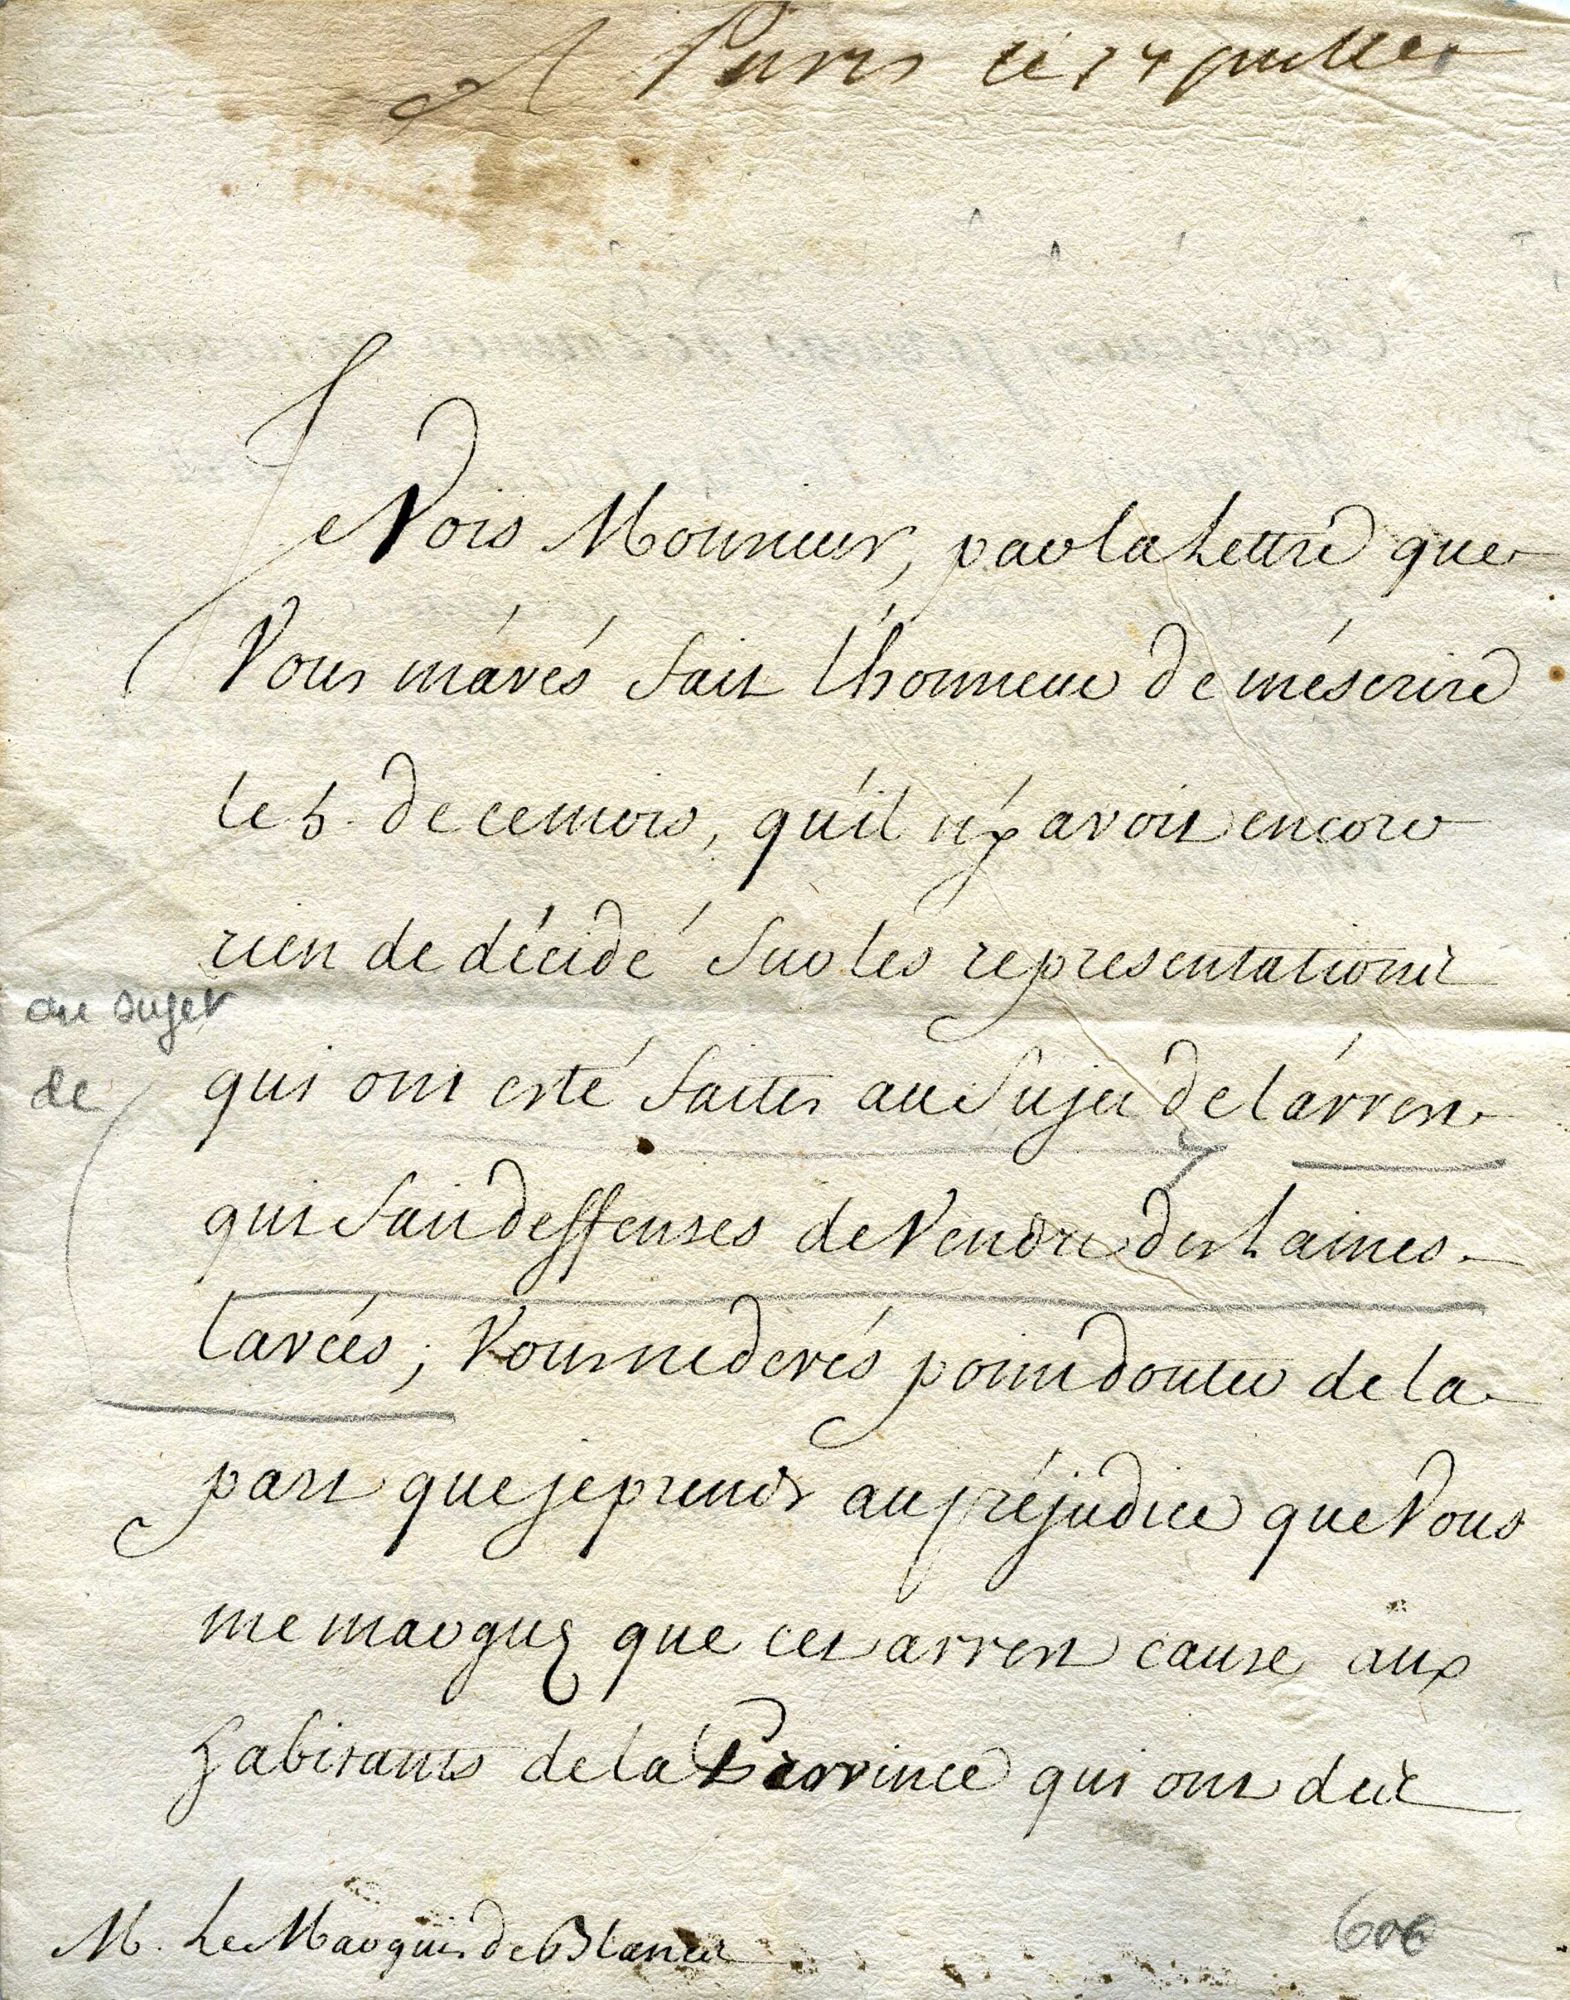 A Paris ce 14 juillet
Je Vois Monsieur, par la Lettre que
Vous m'avés fait l'honneur de m'éscrire
le 5. de ce mois, qu'il n'y avoit encore
rien de décidé sur les representations
au sujet
de
qui ont esté faites au Sujet de l'arrest
qui fait deffenses de Vendre des Laines
lavées; Vous ne devés point douter de la
part que je prends au préjudice que Vous
me marquez que cet arrest cause aux
habitants de la Province qui ont des
M. Le Marquis de Blanes
60€